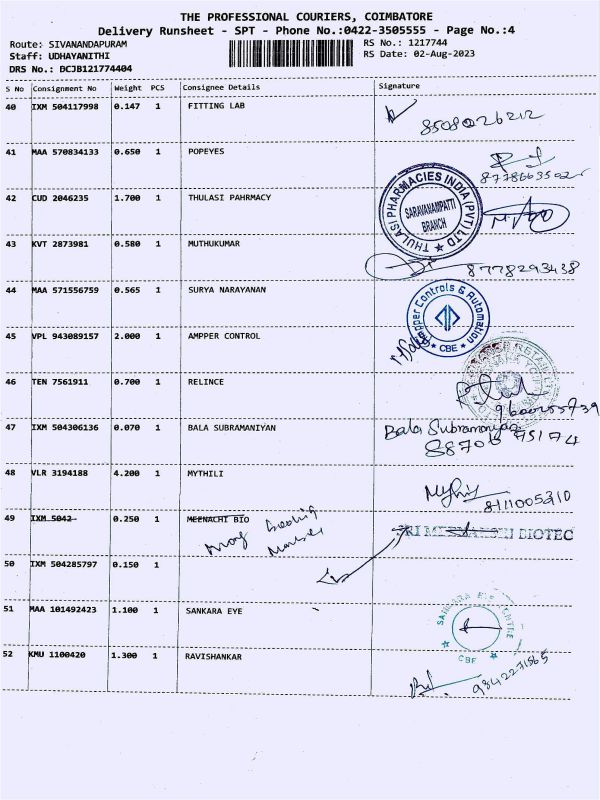 THE PROFESSIONAL COURIERS, COIMBATORE
Delivery Runsheet - SPT - Phone No.:0422-3505555 - Page No.:4
Route: SIVANANDAPURAM RS No.: 1217744
Staff: UDHAYANITHI RS Date: 02-Aug-2023
DRS No.: DCJB121774404
S No Consignment No Weight PCS Consignee Details Signature
40 IXM 504117998 0.147 1 FITTING LAB
8508026212
41 MAA 570834133 0.650 1 POPEYES
42 CUD 2046235 1.700 1 THULASI PAHRMACY
THULASI PHARMACIES INDIA (PVT) LTD
SARAVANAMPATTI
BRANCH
43 KVT 2873981 0.580 1 MUTHUKUMAR
8778293438
44 MAA 571556759 0.565 1 SURYA NARAYANAN
45 VPL 943089157 2.000 1 AMPPER CONTROL
Controls & Automation
CBE
46 TEN 7561911 0.700 1 RELINCE
9600255739
47 IXM 504306136 0.070 1 BALA SUBRAMANIYAN
Bala Subramaniyan
88706 75174
48 VLR 3194188 4.200 1 MYTHILI
8111005310
49 IXM 5042 0.250 1 MEENACHI BIO
SRI MEENAKSHI BIOTEC
50 IXM 504285797 0.150 1
51 MAA 101492423 1.100 1 SANKARA EYE
SANKARA EYE CENTRE
CBE
52 KMU 1100420 1.300 1 RAVISHANKAR
9842271565